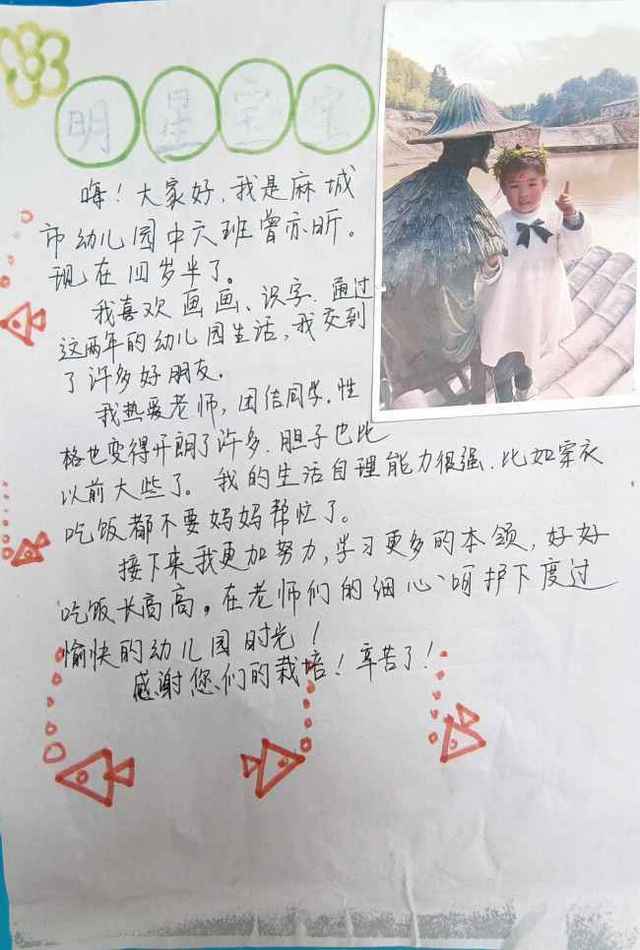 明星宝宝
嗨！大家好，我是麻城
市幼儿园中六班曾亦昕。
现在四岁半了。
我喜欢画画、识字．通过
这两年的幼儿园生活，我交到
了许多好朋友．
我热爱老师，团结同学．性
格也变得开朗了许多．胆子也比
以前大些了。我的生活自理能力很强．比如穿衣
吃饭都不要妈妈帮忙了。
接下来我更加努力，学习更多的本领，好好
吃饭长高高。在老师们的细心呵护下度过
愉快的幼儿园时光！
感谢您们的栽培！辛苦了！